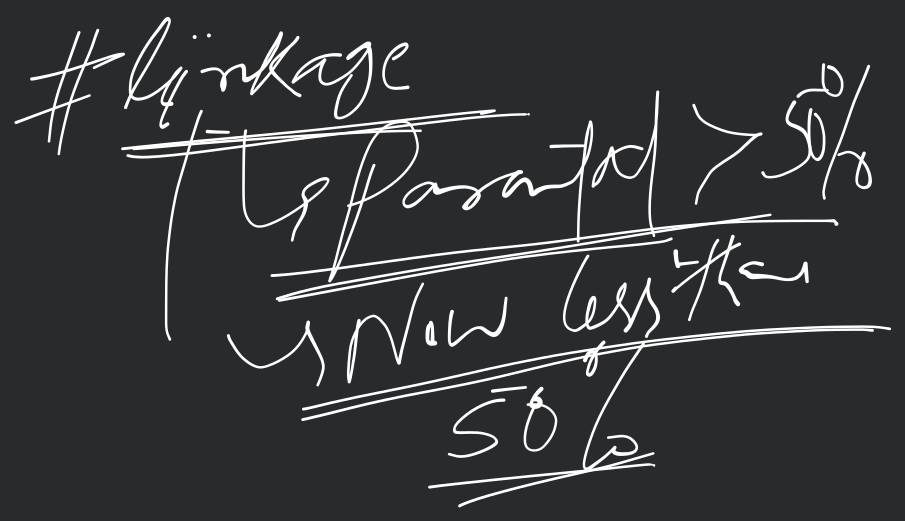 #linkage
↳ Parental > 50%
↳ New less than
50%